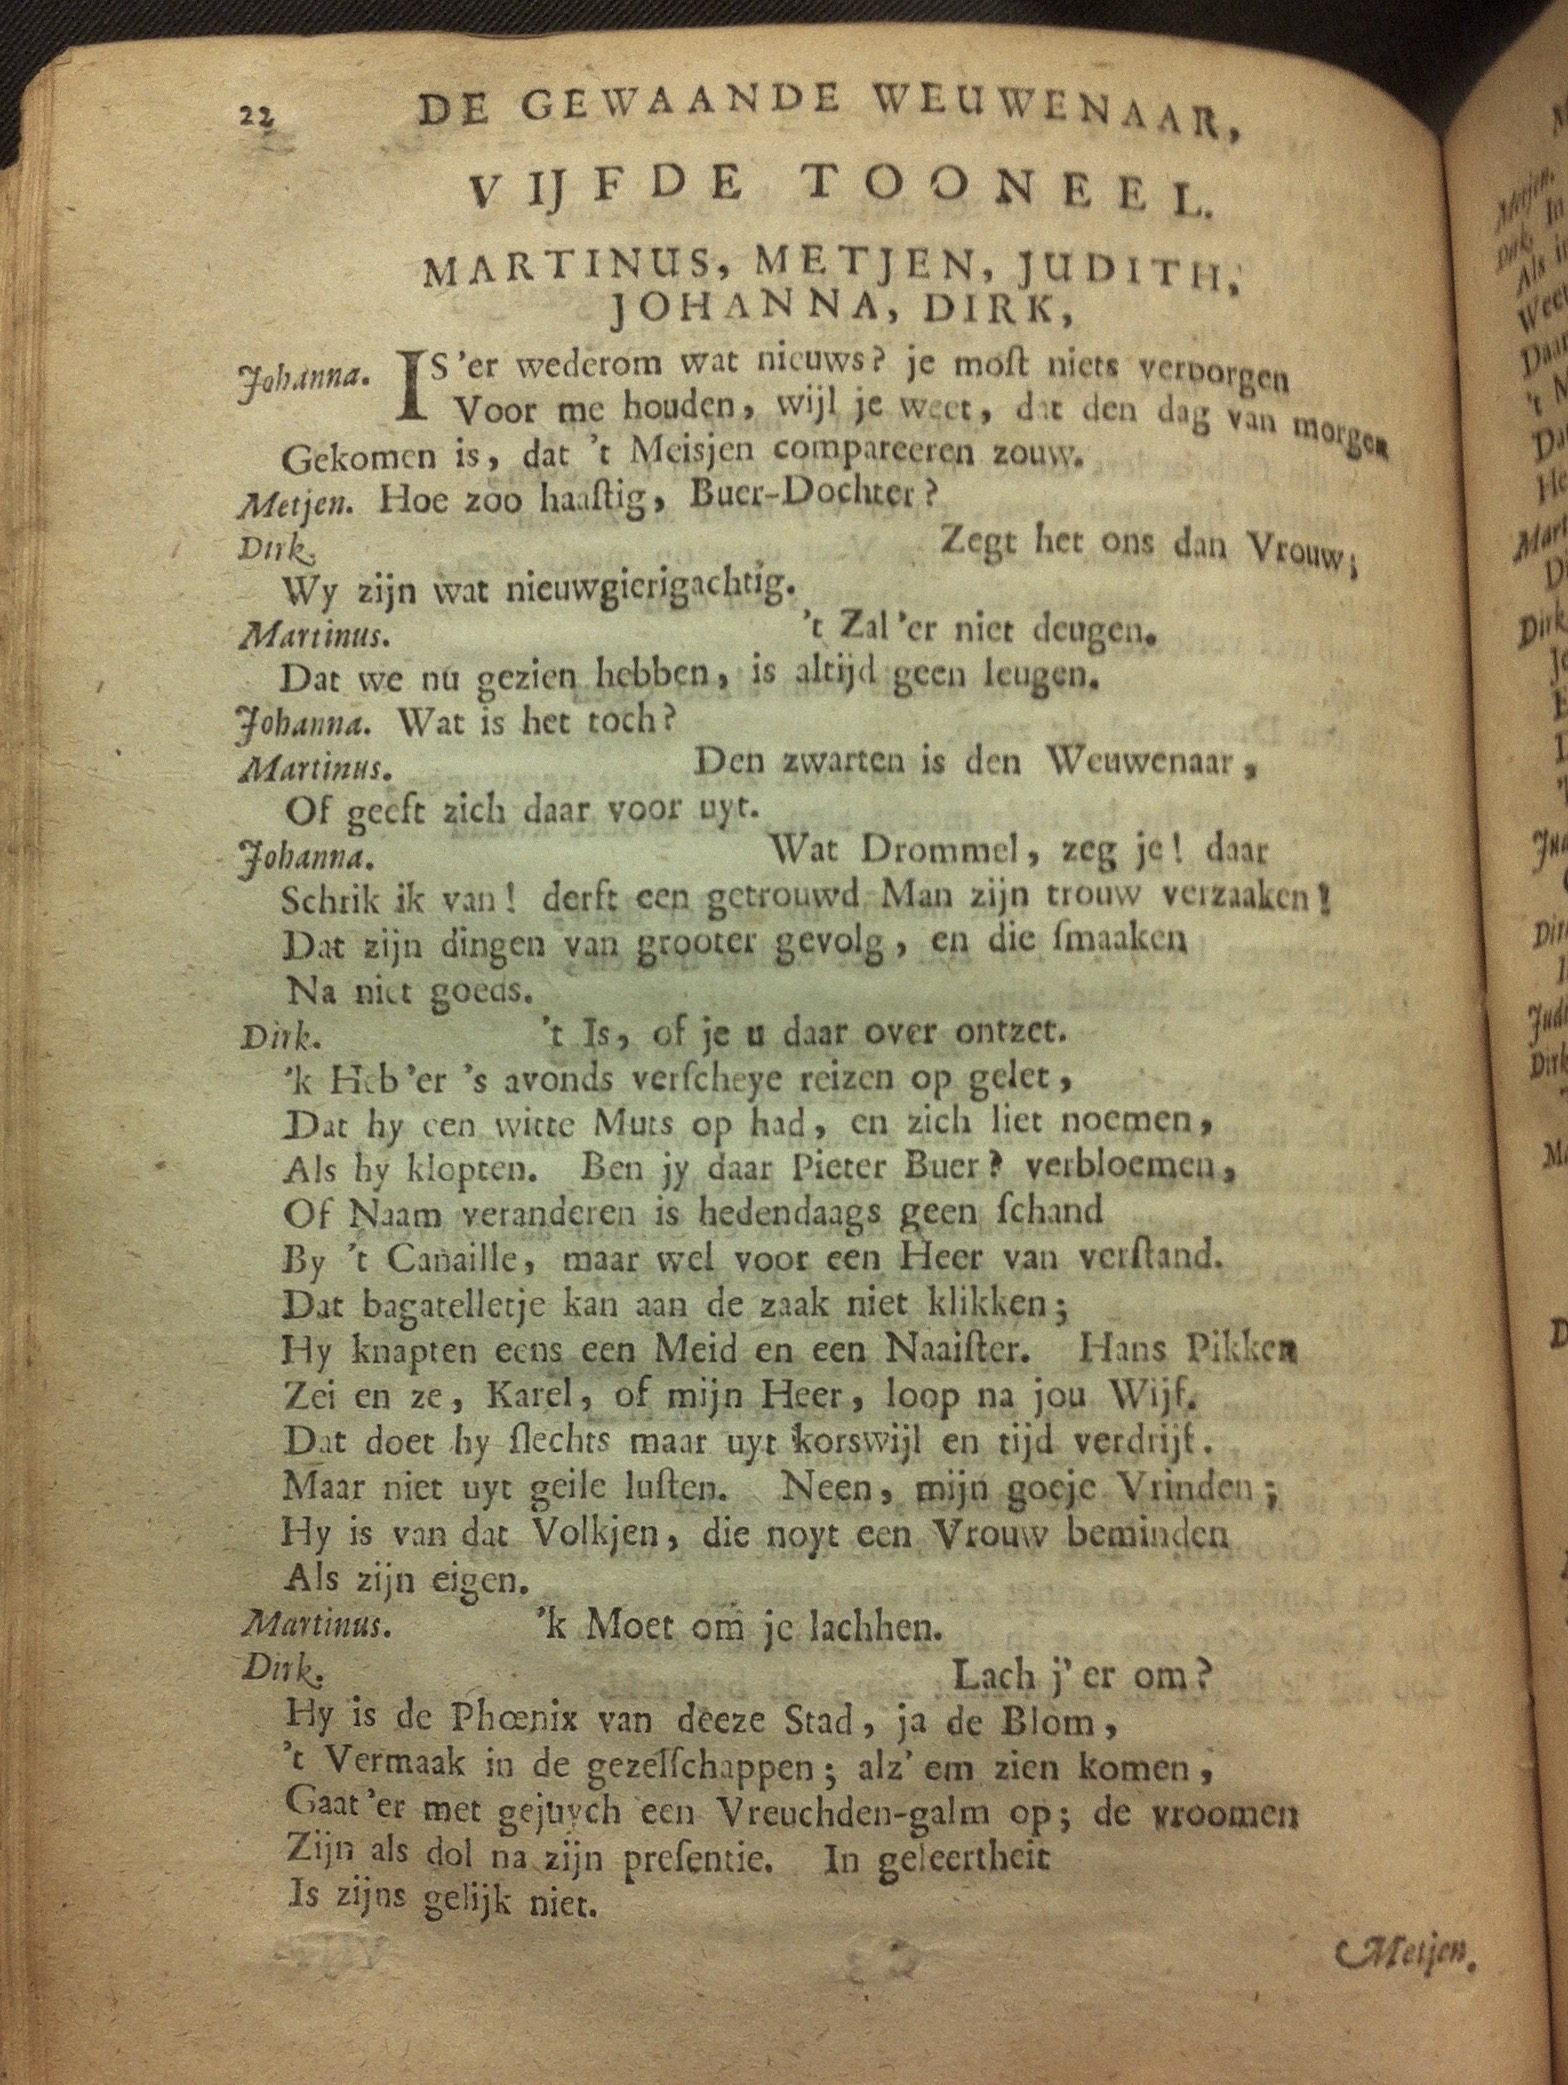 22 DE GEWAANDE WEUWENAAR,
VIJFDE TOONEEL.
MARTINUS, METJEN, JUDITH,
JOHANNA, DIRK,
Johanna. IS 'er wederom wat nieuws? je moſt niets verborgen
Voor me houden, wijl je weet, dat den dag van morgen
Gekomen is, dat 't Meisjen compareeren zouw.
Metjen. Hoe zoo haaſtig, Buer-Dochter?
Dirk. Zegt het ons dan Vrouw;
Wy zijn wat nieuwgierigachtig.
Martinus. 't Zal 'er niet deugen.
Dat we nu gezien hebben, is altijd geen leugen.
Johanna. Wat is het toch?
Martinus. Den zwarten is den Weuwenaar,
Of geeft zich daar voor uyt.
Johanna. Wat Drommel, zeg je! daar
Schrik ik van! derft een getrouwd Man zijn trouw verzaaken!
Dat zijn dingen van grooter gevolg, en die ſmaaken
Na niet goeds.
Dirk. 't Is, of je u daar over ontzet.
'k Heb 'er 's avonds verſcheye reizen op gelet,
Dat hy een witte Muts op had, en zich liet noemen,
Als hy klopten. Ben jy daar Pieter Buer? verbloemen,
Of Naam veranderen is hedendaags geen ſchand
By 't Canaille, maar wel voor een Heer van verſtand.
Dat bagatelletje kan aan de zaak niet klikken;
Hy knapten eens een Meid en een Naaiſter. Hans Pikken
Zei en ze, Karel, of mijn Heer, loop na jou Wijf.
Dat doet hy ſlechts maar uyt korswijl en tijd verdrijf.
Maar niet uyt geile luſten. Neen, mijn goeje Vrinden;
Hy is van dat Volkjen, die noyt een Vrouw beminden
Als zijn eigen.
Martinus. 'k Moet om je lachhen.
Dirk. Lach j' er om?
Hy is de Phœnix van deeze Stad, ja de Blom,
't Vermaak in de gezelſchappen; alz' em zien komen,
Gaat 'er met gejuych een Vreuchden-galm op; de vroomen
Zijn als dol na zijn preſentie. In geleertheit
Is zijns gelijk niet.
Metjen.